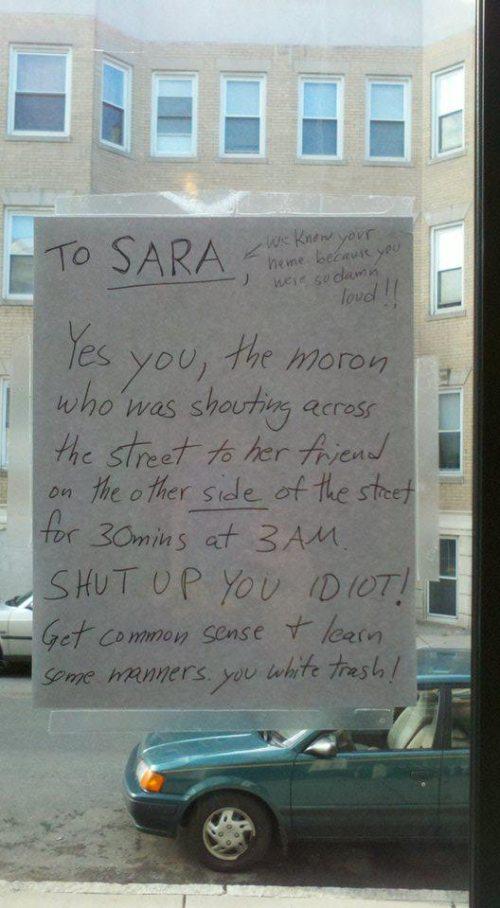 TO SARA,
We Know your
name because you
were so damn
loud!!
Yes you, the moron
who was shouting across
the street to her friend
on the other side of the street
for 30mins at 3AM.
SHUT UP YOU IDIOT!
Get common sense + learn
some manners. you white trash!